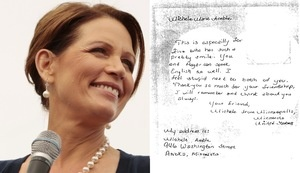 Michele Marie Amble
This is especially for
give who has such a
pretty smile. You
and Roger can speak
English so well. I
feel stupid next to both of you.
Thank you so much for your friendship,
I will remember and think about you
always.
Your friend,
Michele from Minneapolis,
Minnesota
United States
My address is:
Michele Amble
Washington Street
Anoka, Minnesota